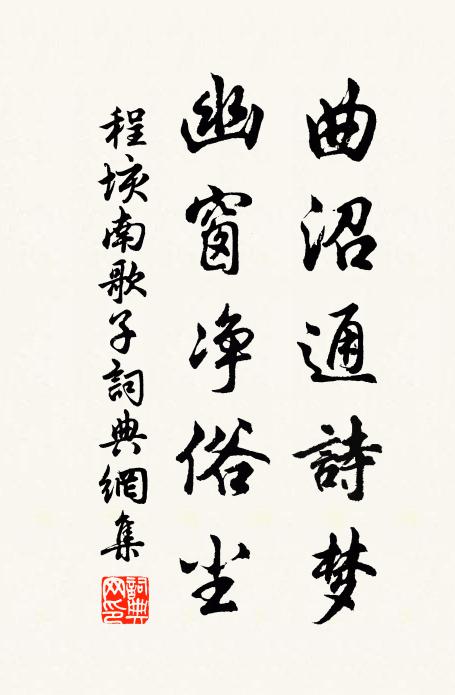 曲沼通詩梦
幽窗净俗尘
程垓南歌子詞典網集
詞典网印